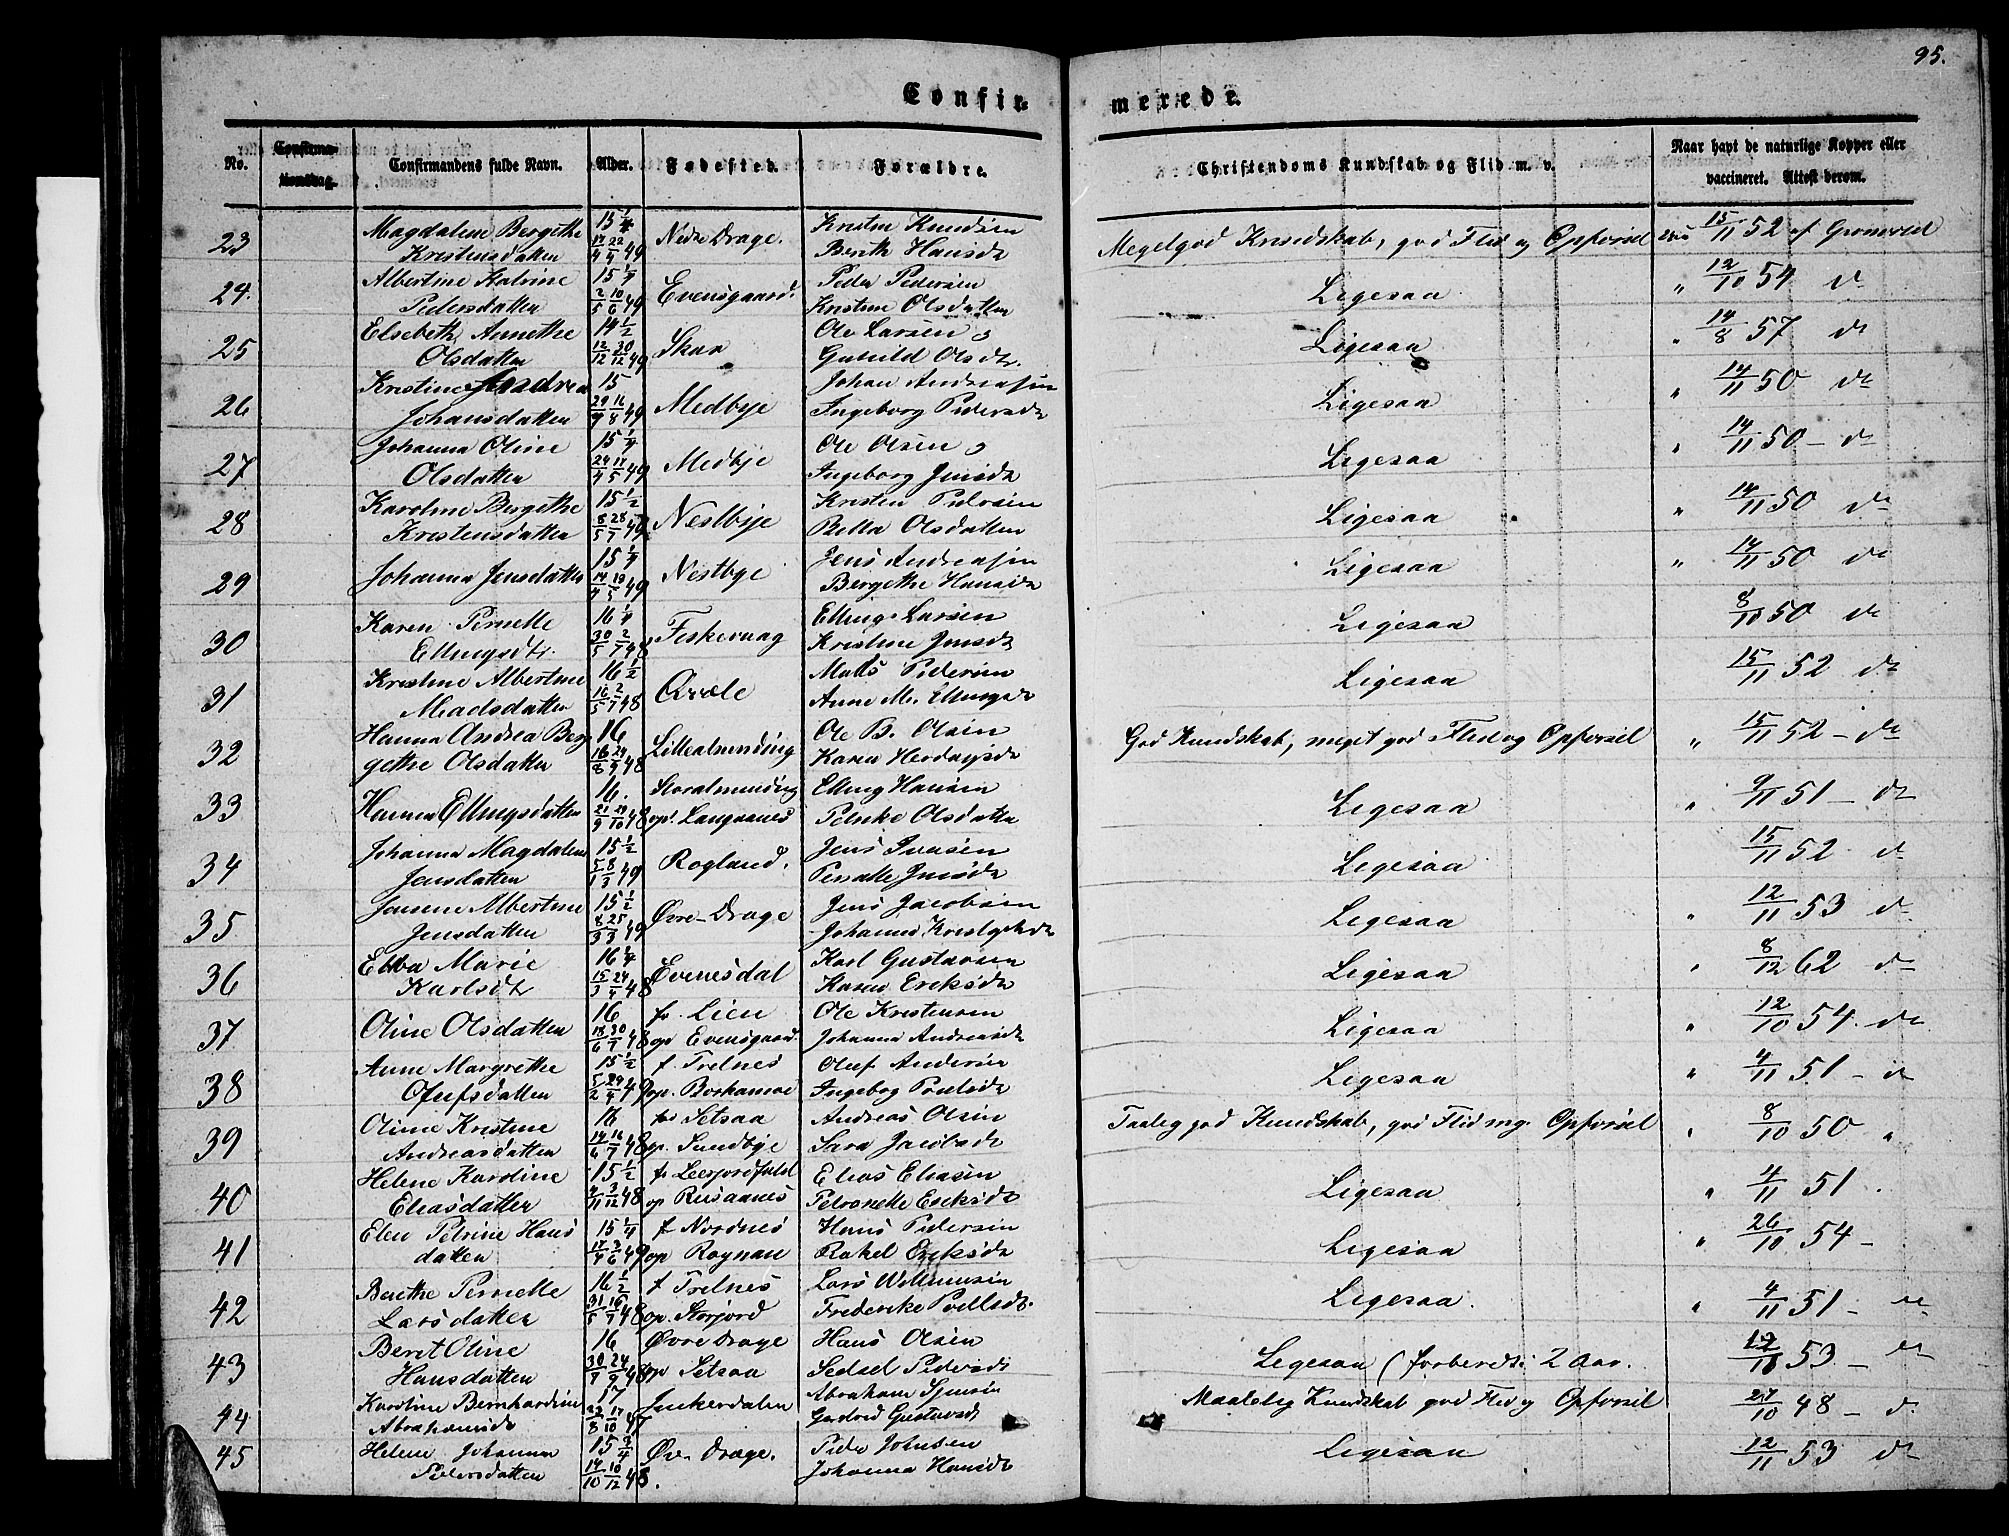 95.
Confir- merede.
No. Confirmationsdag. Confirmandens fulde Navn. Alder. Fødested. Forældre. Christendoms Kundskab og Flid m. v. Naar havt de naturlige Kopper eller vaccineret. Attest derom.
23 Magdalene Bergithe Kristensdatten 15 1/4 Nedre Drage. Kristen Knudsen Berith Hansdr Megetgod Kundskab, god Flid og Opførsel 15/11 52 af
24. Albertine Katrine Pedersdatten 15 1/4 2/5 10/6 49 Evensgaard. Peder Pedersen Kristine Olsdatten Ligesaa " 12/10 54 dr
25 Elsebeth Annethe Olsdatten 14 1/2 12/12 30/12 49 Skar Ole Larsen Gunild Olsdr. Ligesaa " 14/8 57 dr
26 Kristine Andrea Johansdatten 15 29/9 16/8 49 Medbye Johan Andreasen Ingeborg Pedersdr Ligesaa " 14/11 50 dr
27 Johanna Oline Olsdatten 15 1/4 Medbye Ole Olsen Ingeborg Jensdr Ligesaa " 14/11 50 - dr
28 Karoline Bergethe Kristensdatten 15 1/2 8/5 28/7 49 Nestbye Kristen Pedersen Olsdatten Ligesaa " 14/11 50 dr
29 Johanna Jensdatten 15 1/4 14/4 19/5 49 Nestbye Jens Andreasen Bergethe Hansdr Ligesaa " 14/11 50 dr
30 Karen Pernelle Ellingsdtr. 16 1/4 30/5 2/7 48 Feskevaag Elling Larsen Kristine Jensdr Ligesaa 8/10 50 dr
31 Kristine Albertine Madsdatten 16 1/2 16/5 2/7 48 Qvæle Mads Pedersen Anne M. Ellingsdr Ligesaa 15/11 52 dr
32 Hanna Andrea Bergethe Olsdatten 16 16/8 24/9 48 Lillealmending Ole B. Olsen Karen God Kundskab, meget god Flid og Opførsel " 15/11 52 - dr
33 Hanna Ellingsdatten 16. 21/9 29/10 48 Storalmending op. Langaanes Elling Hansen Olsdatten Ligesaa " 9/11 51 - dr
34 Johanna Magdalena Jensdatten 15 1/2 5/1 8/3 49 Rogland. Jens Pernelle Jensdr Ligesaa 15/11 52 dr
35 Jensine Albertine Jensdatten 15 1/2 8/3 25/3 49 Øvre-Drage Jens Jacobsen Johanna Ligesaa " 12/11 53 dr
36 Ebba Marie Karlsdtr 16 1/4 15/3 24/4 48 Evenesdal Karl Gustavsen Karen Eriksdr Ligesaa " 8/12 62 dr
37 Oline Olsdatten 16 18/6 30/7 48 f. Lien op Evensgaard. Ole Kristensen Johanna Andreasdr Ligesaa " 12/10 54. dr
38 Anne Margrethe Olufsdatten 15 1/2 5/2 29/4 49 f Trelnes op. Boshamoe Oluf Andersen Ingebog Povlsdr Ligesaa " 4/11 51 - dr
39 Oline Kristine Andreasdatten 16 14/6 16/7 48 f. Setsaa op. Sundbye Andreas Olsen Sara Jacobsdr Taalig god Kundskab, god Flid og Opførsel " 8/10 50 "
40 Helene Kardine Eleasdatter 15 1/2 4/11 3/12 48 f. Leerjordfald op Rusaanes Elias Eleasen Petronelle Eriksdr Ligesaa " 4/11 51.
41 Elen Petrine Hansdatten 15 1/4 17/4 3/6 49 f Nordnes op Rognan Hans Pedersen Rakel Eriksdr Ligesaa " 26/10 54 -
42 Berthe Pernelle Larsdatter 16 1/2 31/5 16/7 48 f Trelnes op. Storjord Lars Willumsen Frederike Povelsdr. Ligesaa. " 4/11 51 - dr
43 Beret Oline Hansdatten 16 30/7 24/9 48 Øvre Drage op Setsaa Hans Olsen Sedsel Pedersdr Ligesaa (forberedt i 2 Aar. 53 - dr
44 Karoline Bernhardine Abrahamsdr 17 17/10 47 Junkerdalen Abraham Jensen Gustavsdr Maadelig Kundskab god Flid og Opførsel 27/10 48 - dr
45 Helene Johanna Pedersdatten 15 3/4 14/10 10/12 48. Øv. Drage. Peder Johnsen Johanna Hansdr Ligesaa 12/11 53 dr